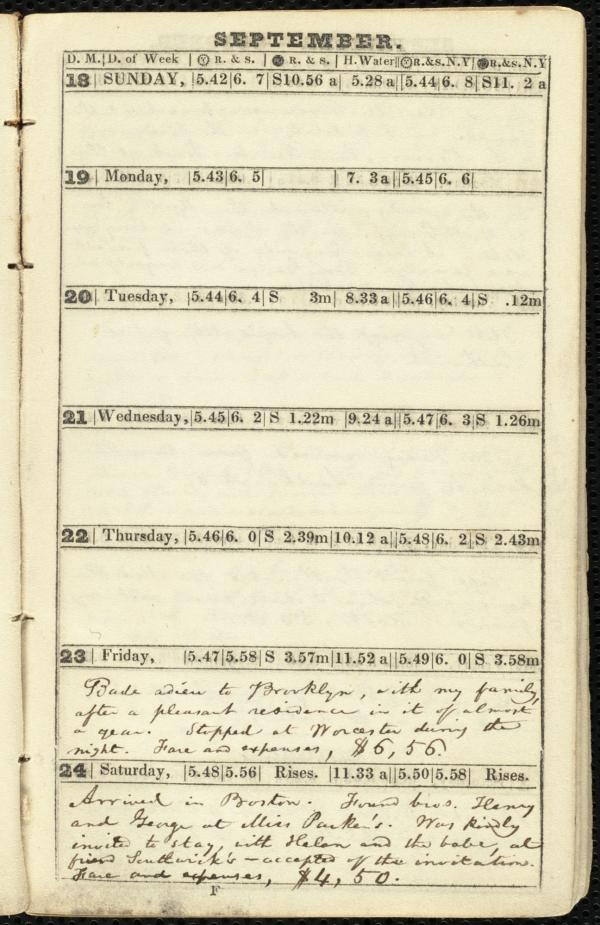 SEPTEMBER.
D. M. | D. of Week | R. & s. | R. & s. | H. Water || R.&s. N.Y | R.&s. N.Y
18 | SUNDAY, | 5.42 | 6. 7 | S10.56 a | 5.28 a || 5.44 | 6. 8 | S11. 2 a
19 | Monday, | 5.43 | 6. 5 | | 7. 3 a || 5.45 | 6. 6 |
20 | Tuesday, | 5.44 | 6. 4 | S 3m | 8.33 a || 5.46 | 6. 4 | S .12m
21 | Wednesday, | 5.45 | 6. 2 | S 1.22m | 9.24 a || 5.47 | 6. 3 | S 1.26m
22 | Thursday, | 5.46 | 6. 0 | S 2.39m | 10.12 a || 5.48 | 6. 2 | S 2.43m
23 | Friday, | 5.47 | 5.58 | S 3.57m | 11.52 a || 5.49 | 6. 0 | S 3.58m
Bade adieu to Brooklyn, with my family,
after a pleasant residence in it of almost
a year. Stopped at Worcester during the
night. Fare and expenses, $6,56.
24 | Saturday, | 5.48 | 5.56 | Rises. | 11.33 a || 5.50 | 5.58 | Rises.
Arrived in Boston. Found bros. Henry
and George at Miss Parker's. Was kindly
invited to stay, with Helen and the babe, at
friend Southwick's – accepted of the invitation.
Fare and expenses, $4,50.
F